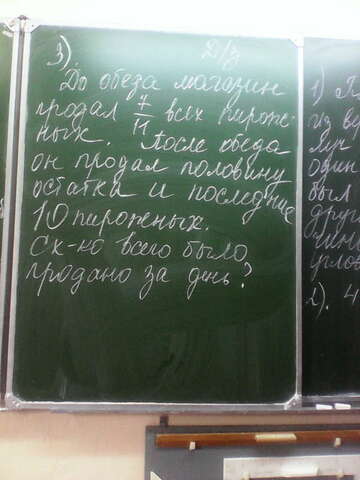 3) Д/з
До обеда магазин
продал 7/11 всех пирож-
ных. После обеда
он продал половину
остатка и последние
10 пирожных.
Ск-ко всего было
продано за день?
1)
из
один
был
2). 4